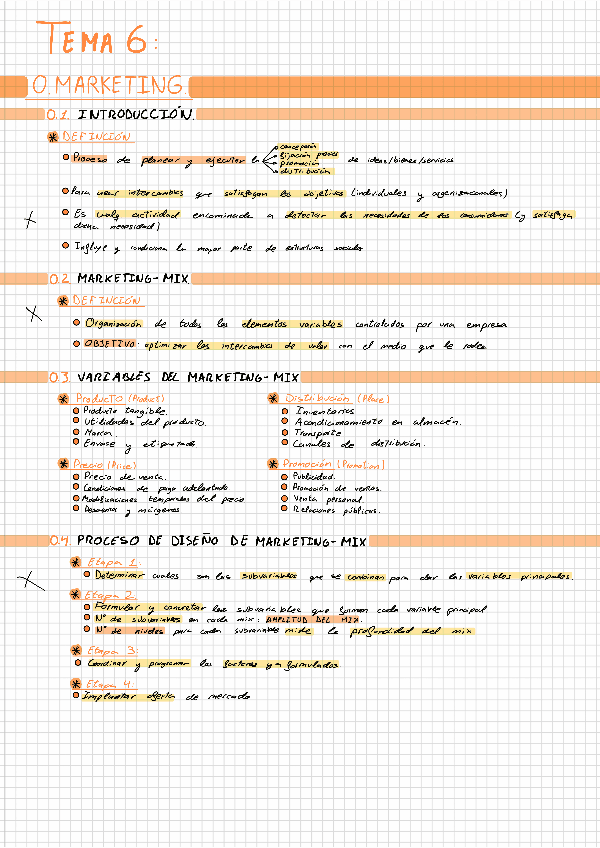 TEMA 6:
0. MARKETING.
0.1. INTRODUCCIÓN.
DEFINCIÓN
Proceso de planear y ejecutar la
concepción
fijación precios
promoción
distribución
de ideas/bienes/servicios
Para crear intercambios que satisfagan los objetivos (individuales y organizacionales)
Es cualq actividad encaminada a detectar las necesidades de los consumidores (y satisfaga
dicha necesidad)
Influye y condiciona la mayor parte de estructuras sociales
0.2. MARKETING-MIX
DEFINCIÓN
Organización de todos los elementos variables controlados por una empresa
OBJETIVO: optimizar los intercambios de valor con el medio que le rodea
0.3. VARIABLES DEL MARKETING-MIX
Producto (Product)
Producto tangible.
Utilidades del producto.
Marca.
Envase y etiquetado
Distribución (Place)
Inventarios
Acondicionamiento en almacén.
Transporte
Canales de distribución.
Precio (Price)
Precio de venta.
Condiciones de pago adelantado
Modificaciones temporales del precio
Descuentos y márgenes
Promoción (Promotion)
Publicidad.
Promoción de ventas.
Venta personal.
Relaciones públicas.
0.4. PROCESO DE DISEÑO DE MARKETING-MIX
Etapa 1:
Determinar cuales son las subvariables que se combinan para dar las variables principales.
Etapa 2.
Formular y concretar las subvariables que forman cada variable principal
Nº de subvariables en cada mix: AMPLITUD DEL MIX.
Nº de niveles para cada subvariable mide la profundidad del mix
Etapa 3:
Coordinar y programar los factores ya formulados
Etapa 4:
Implantar oferta de mercado